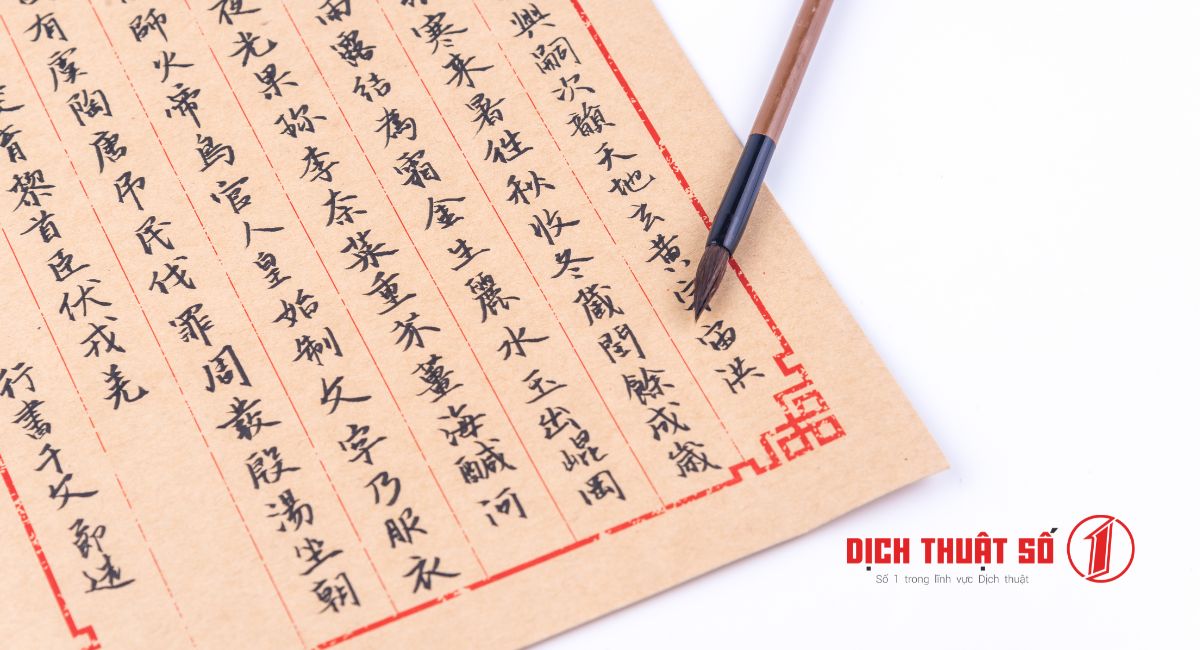 興嗣次韻天地玄黃宇宙洪
寒来暑往秋收冬藏閏餘成歲
雨露結為霜金生麗水玉出崐岡
夜光果珍李奈菜重芥薑海鹹河
師火帝鳥官人皇始制文字乃服衣
有虞陶唐吊民伐罪周發殷湯坐朝
育黎首臣伏戎羌
行書千文節選
DỊCH THUẬT SỐ 1
Số 1 trong lĩnh vực Dịch thuật